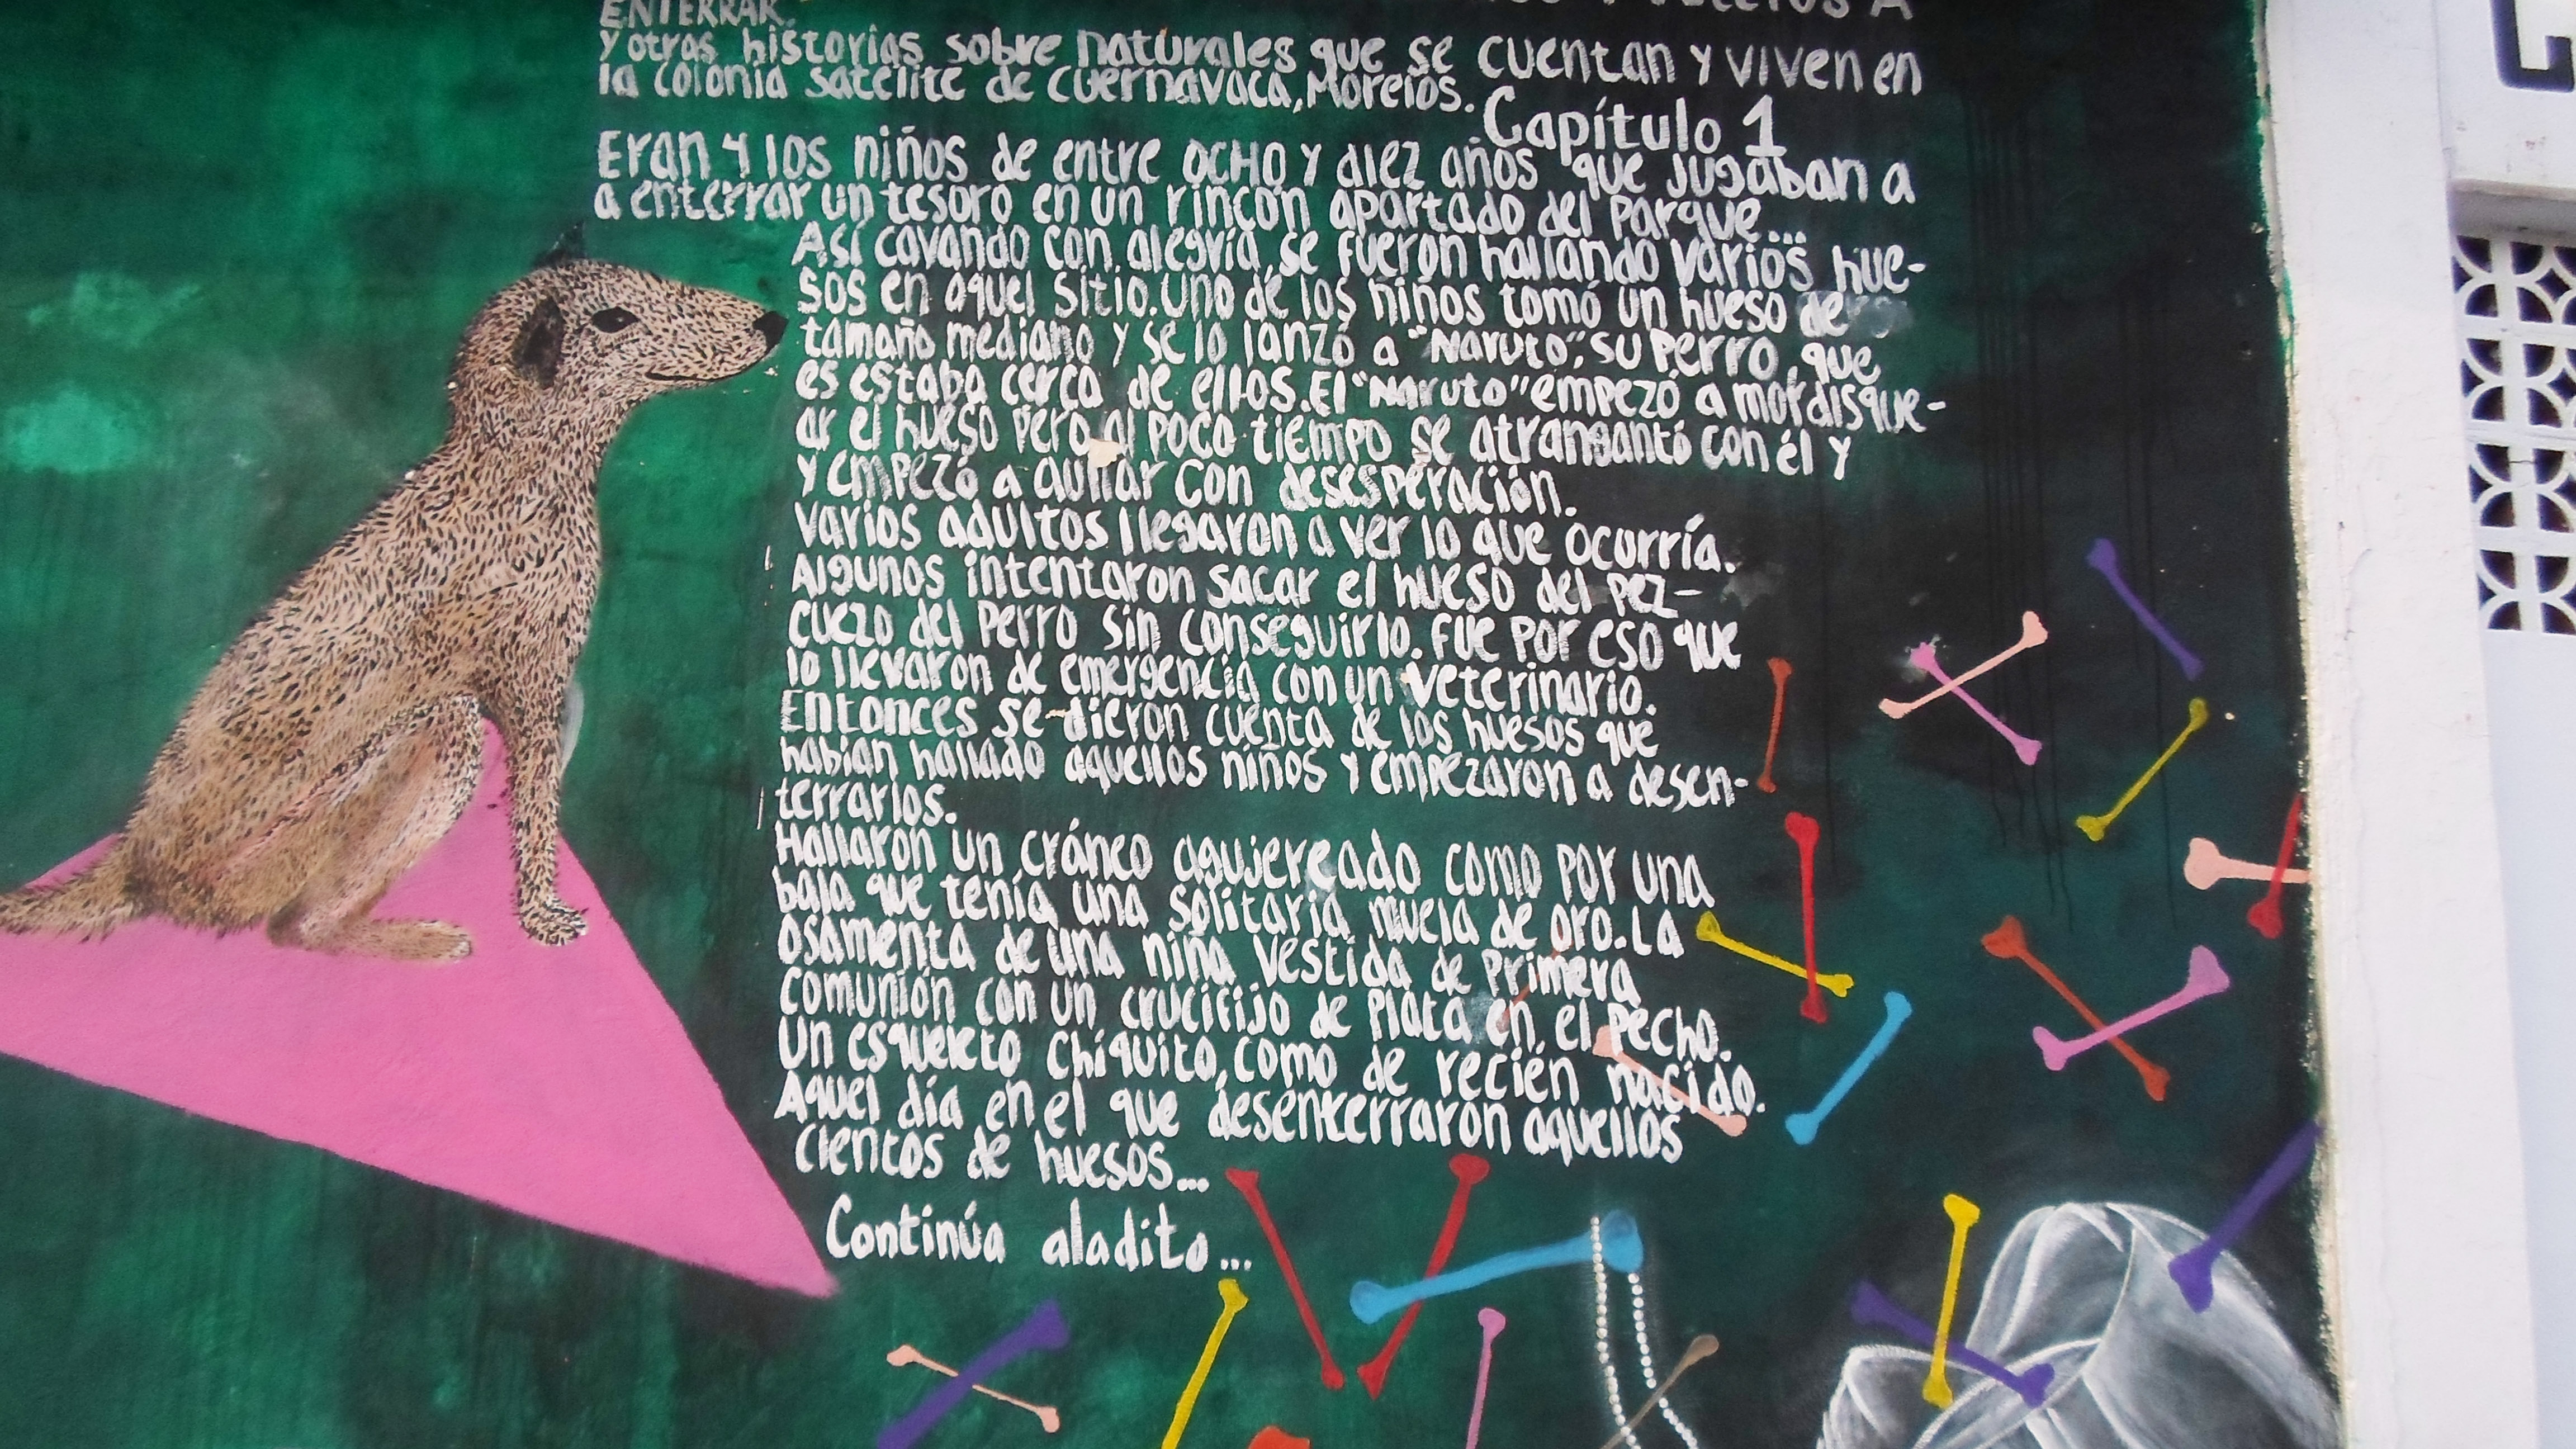 ENTERRAR.
y otras historias sobre naturales que se cuentan y viven en
la colonia satélite de Cuernavaca, Morelos.
Capítulo 1
Eran 4 los niños de entre OCHO y diez años que jugaban a
a enterrar un tesoro en un rincón apartado del Parque...
Así cavando con alegría, se fueron hallando varios hue-
sos en aquel sitio. Uno de los niños tomó un hueso de
tamaño mediano y se lo lanzó a "Naruto", su perro, que
es estaba cerca de ellos. El "Naruto" empezó a mordisque-
ar el hueso pero al poco tiempo se atrangantó con él y
y empezó a aullar con desesperación.
Varios adultos llegaron a ver lo que ocurría.
Algunos intentaron sacar el hueso del pez-
cuezo del perro sin conseguirlo. Fue por eso que
lo llevaron de emergencia con un veterinario.
Entonces se dieron cuenta de los huesos que
habían hallado aquellos niños y empezaron a desen-
terrarlos.
Hallaron un cráneo agujereado como por una
bala que tenía una solitaria muela de oro. La
osamenta de una niña vestida de primera
comunión con un crucifijo de plata en el pecho.
Un esqueleto chiquito, como de recién nacido.
Aquel día en el que desenterraron aquellos
cientos de huesos...
Continúa aladito...